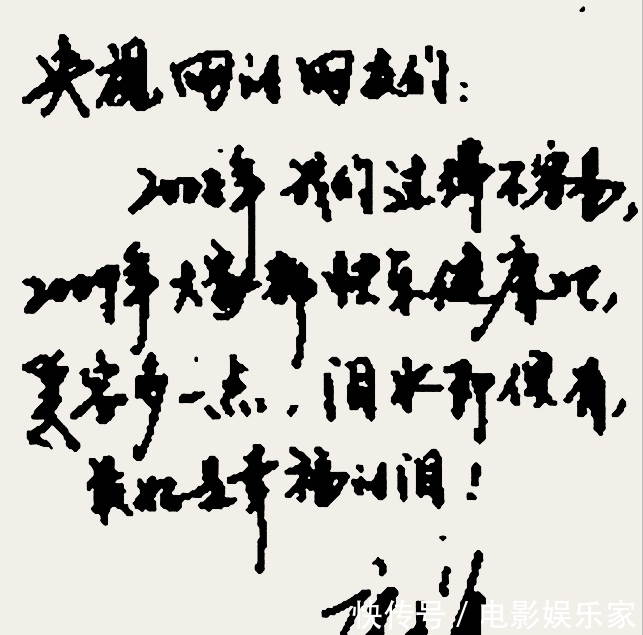 央视网的网友们：
2008年我们过得不容易，
2009年大家都快乐健康吧，
笑容多一点，泪水都没有，
最好是幸福的泪！
快传号 / 电影娱乐家